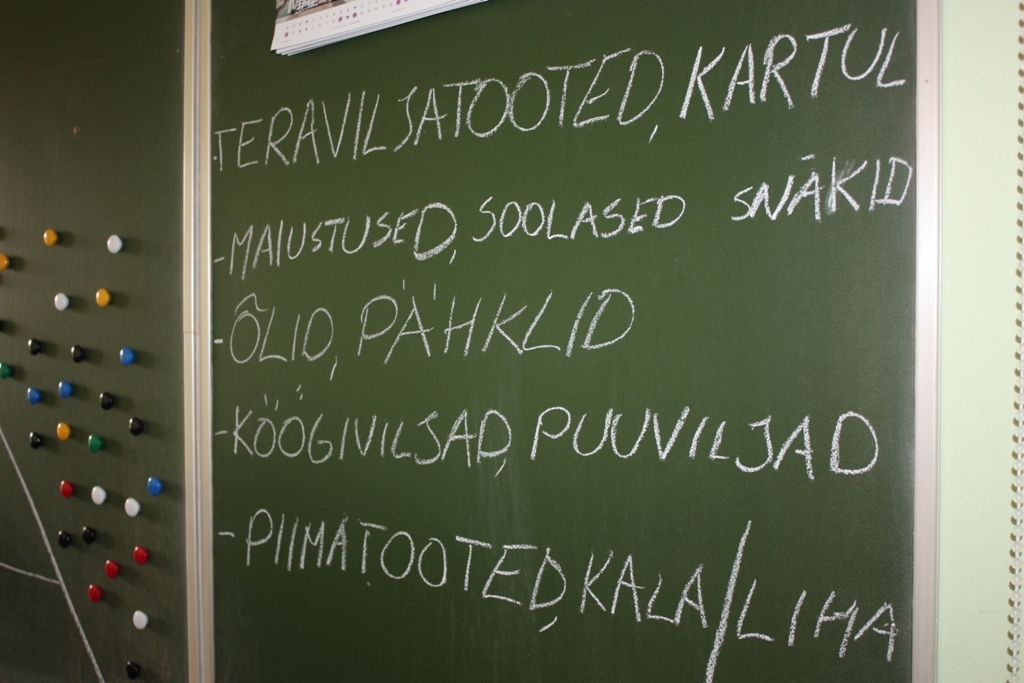 -TERAVILJATOOTED, KARTUL
-MAIUSTUSED, SOOLASED SNÄKID
-ÕLID, PÄHKLID
-KÖÖGIVILJAD, PUUVILJAD
-PIIMATOOTED, KALA/LIHA